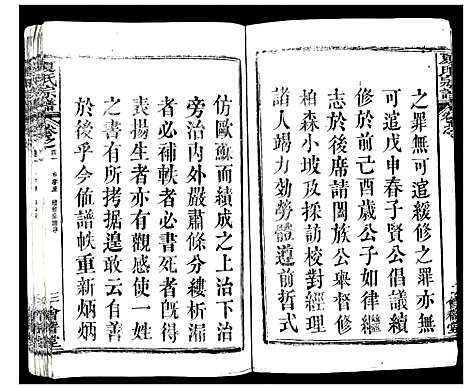 之罪無可逭緩修之罪亦無
可逭戊申春子賢公倡議續
修於前己酉歲公子如律繼
之於後席請闔族公舉督修
柏森小坡及採訪校對經理
諸人踢力効勞體遵前哲式
仿歐蘇而績成之上治下治
旁治內外嚴肅條分縷析漏
者必補軼者必書死者既得
表揚生者亦有觀感使一姓
之書有所考据遑敢云有善
於後乎今値譜軼重新炳炳